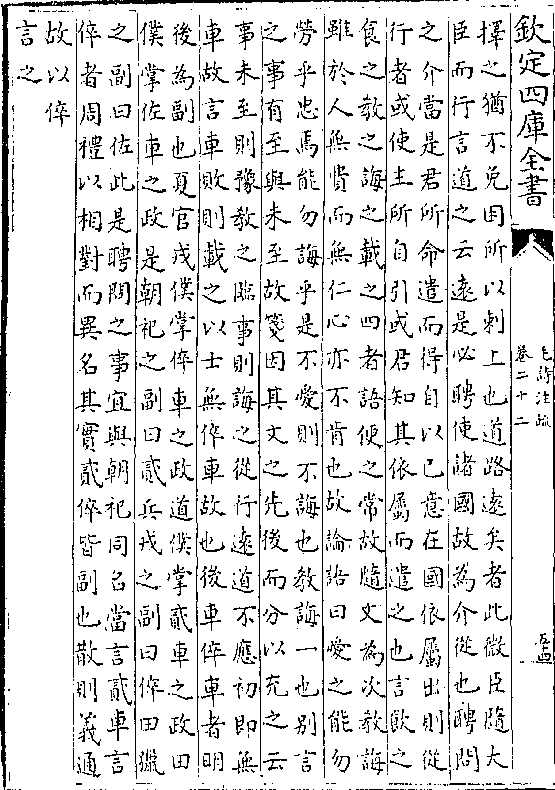 欽定四庫全書
毛詩注疏
卷二十二
擇之猶不免困所以刺上也道路遠矣者此微臣隨大
臣而行言道之云遠是必聘使諸國故為介從也聘問
之介當是君所命遣而得自以己意在國依屬出則從
行者或使主所自引或君知其依屬而遣之也言飲之
食之教之誨之載之四者語便之常故隨文為次教誨
雖於人無費而無仁心亦不肯也故論語曰愛之能勿
勞乎忠焉能勿誨乎是不愛則不誨也教誨一也別言
之事有至與未至故箋因其文之先後而分以充之云
事未至則豫教之臨事則誨之從行遠道不應初即無
車故言車敗則載之以士無倅車故也後車倅車者明
後為副也夏官戎僕掌倅車之政道僕掌貳車之政田
僕掌佐車之政是朝祀之副曰貳兵戎之副曰倅田獵
之副曰佐此是聘問之事宜與朝祀同名當言貳車言
倅者周禮以相對而異名其實貳倅皆副也散則義通
故以倅
言之